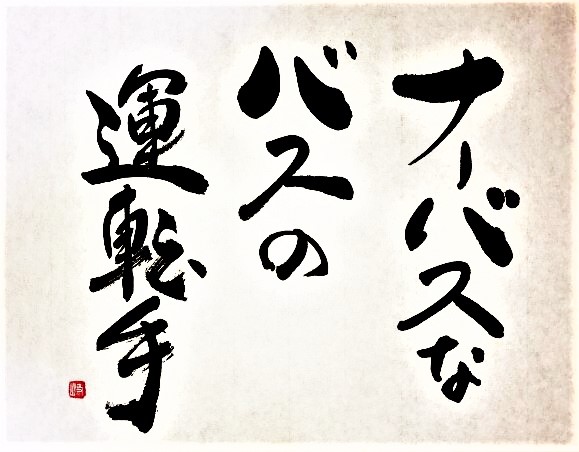 ナーバスな
バスの
運転手